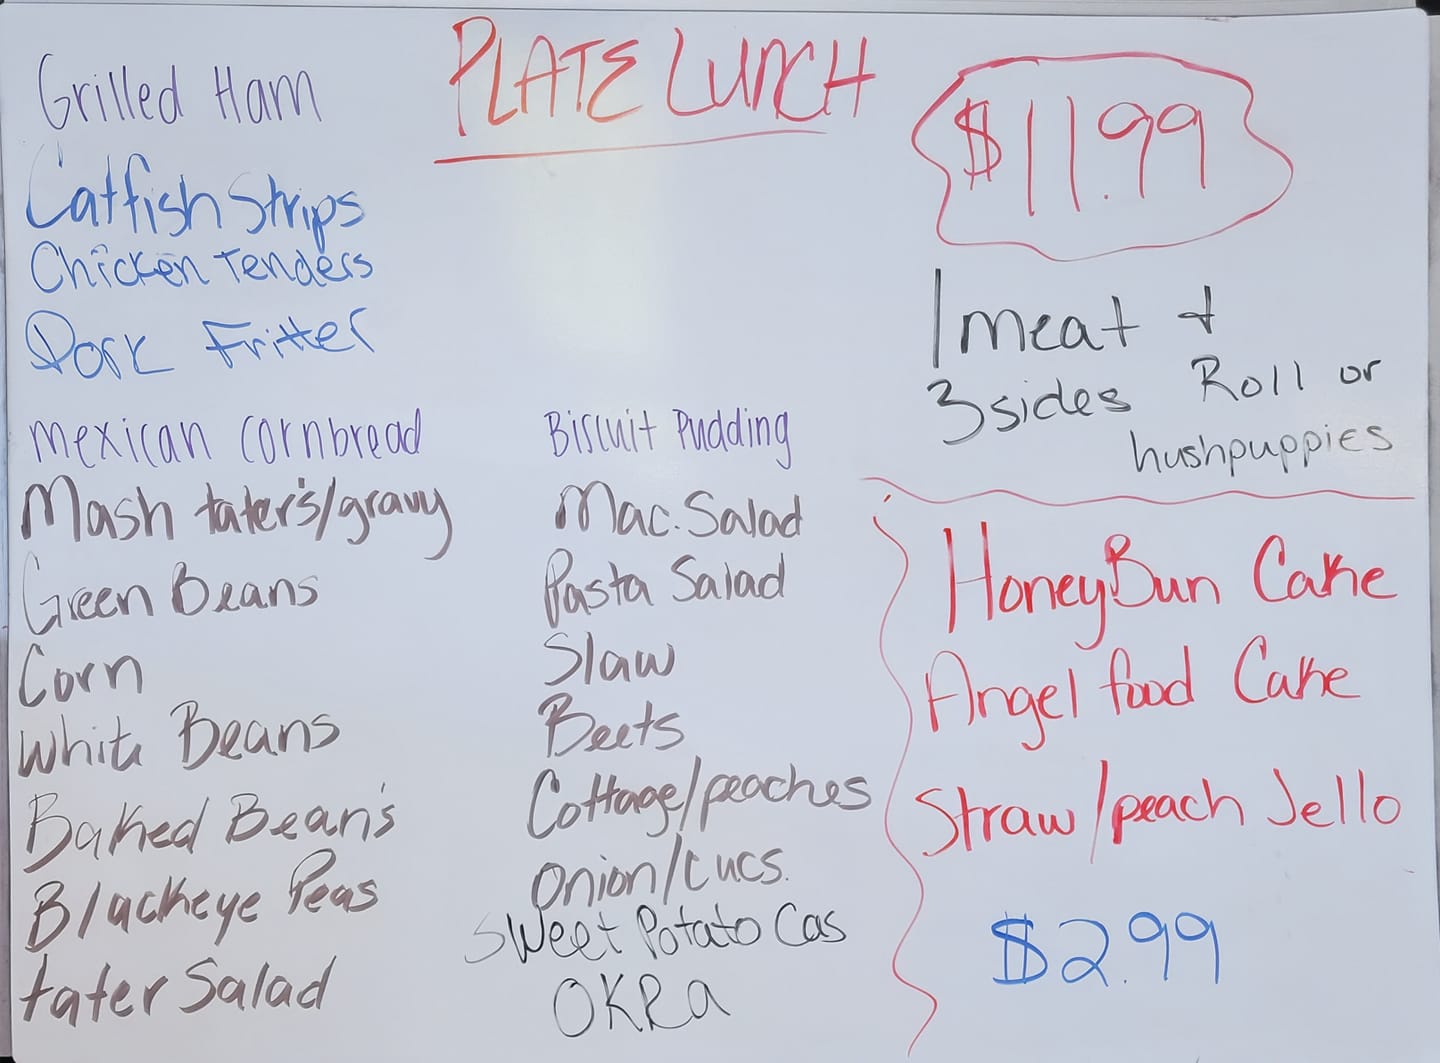 PLATE LUNCH
Grilled Ham
Catfish Strips
Chicken Tenders
Pork Fritter
mexican cornbread
Mash tater's/gravy
Green Beans
Corn
White Beans
Baked Bean's
Blackeye Peas
tater Salad
Biscuit Pudding
Mac. Salad
Pasta Salad
Slaw
Beets
Cottage/peaches
Onion/cucs.
Sweet Potato Cas
OKRa
$11.99
1 meat +
3 sides Roll or
hushpuppies
HoneyBun Cake
Angel food Cake
Straw/peach Jello
$2.99